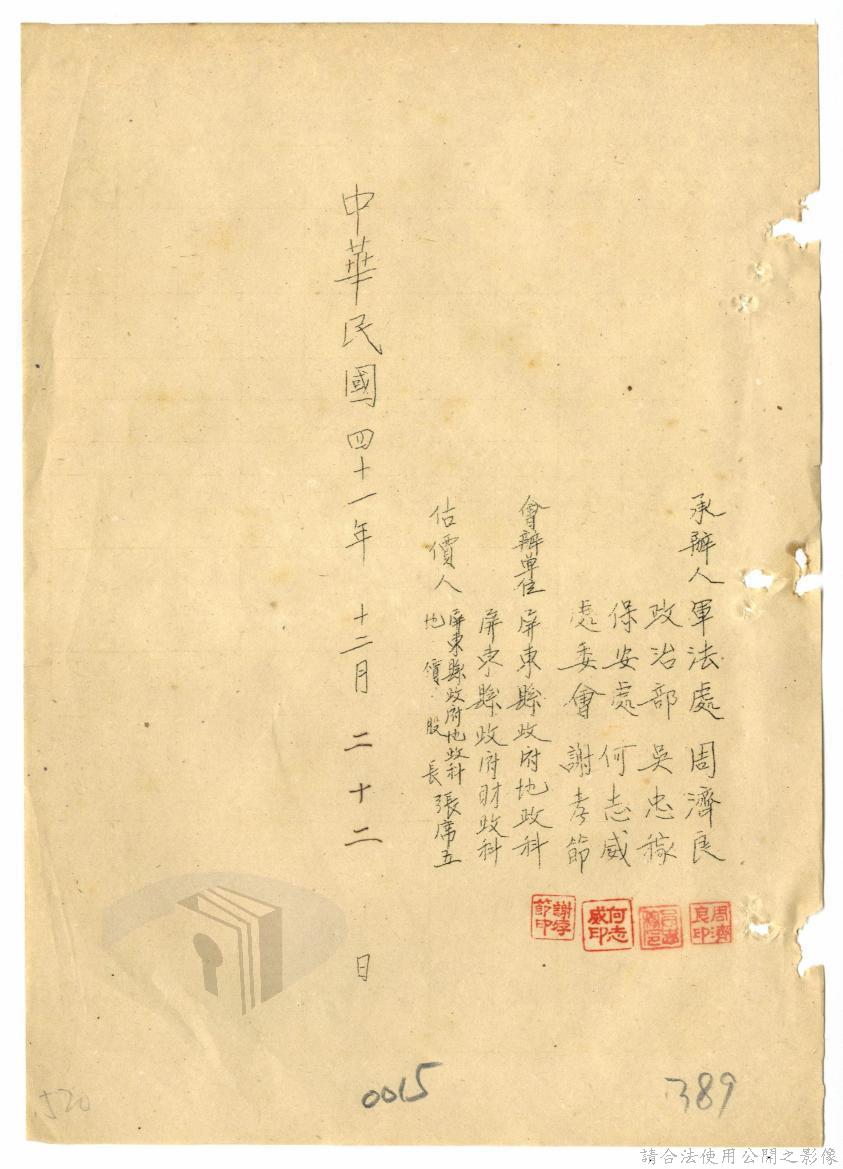 承辦人 軍法處 周濟良
政治部 吳忠稼
保安處 何志威
處委會 謝孝節
周濟良印
何志威印
謝孝節印
會辦單位 屏東縣政府地政科
屏東縣政府財政科
估價人 屏東縣政府地政科
地價股長 張席五
中華民國四十一年十二月二十二日
520
0015
389
請合法使用公開之影像